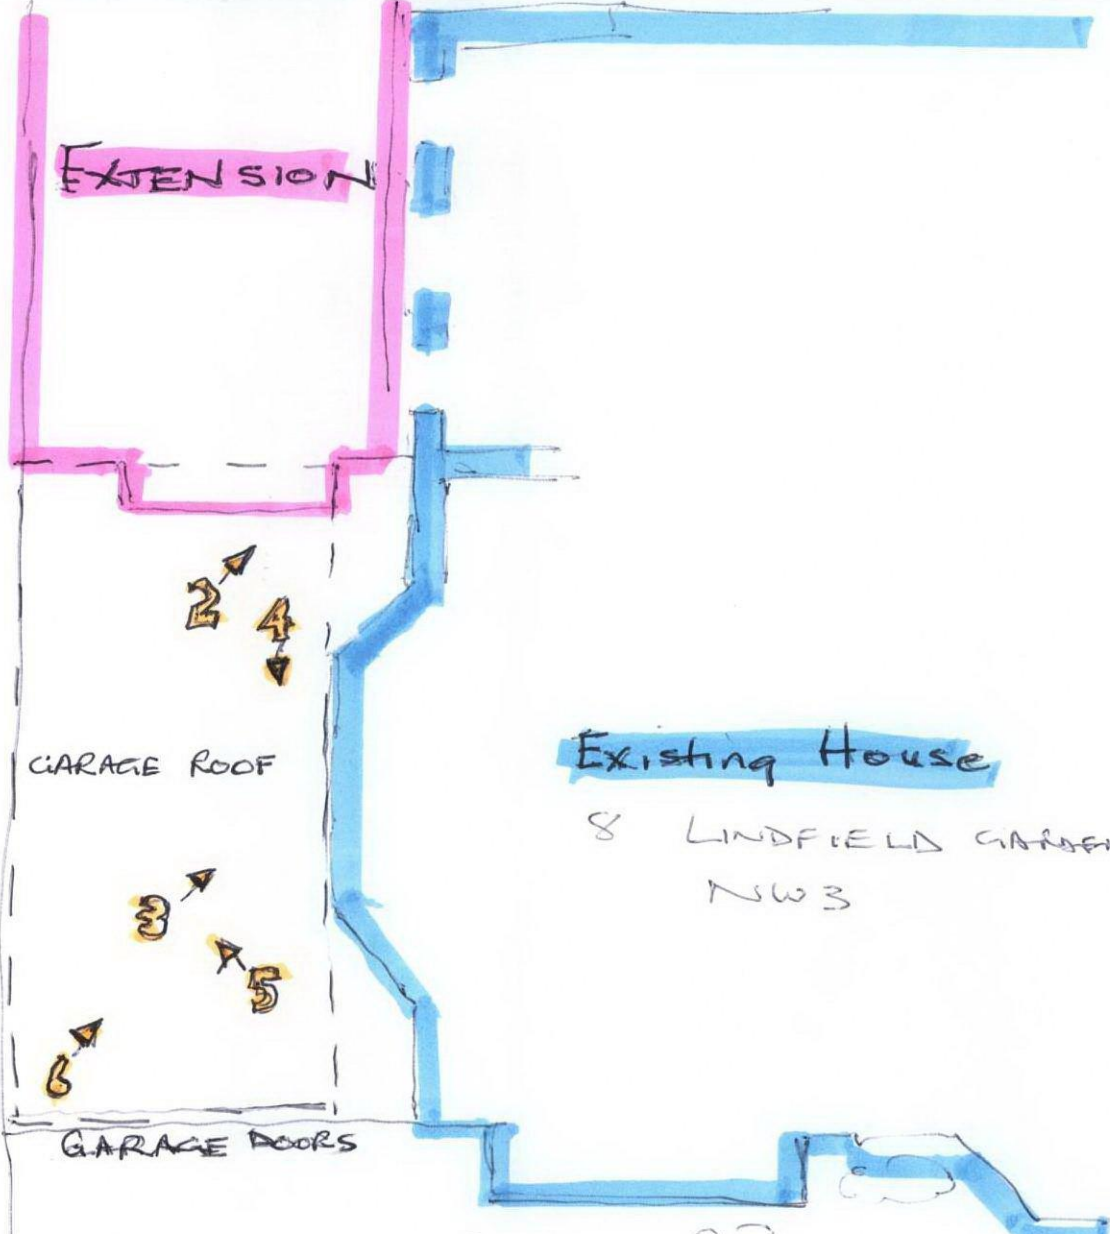 EXTENSION
2
4
GARAGE ROOF
Existing House
8 LINDFIELD
NW3
3
5
6
GARAGE DOORS